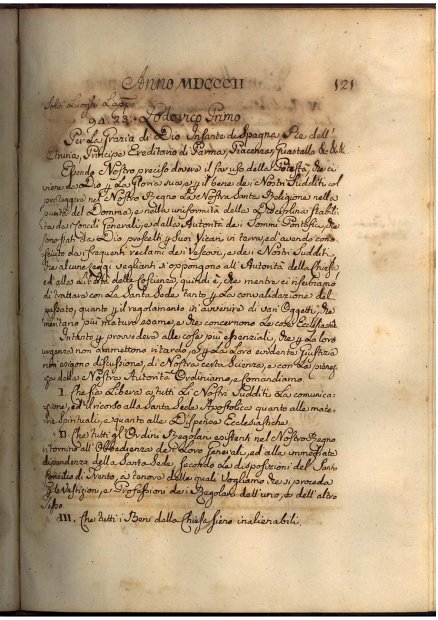 Anno MDCCCII
121
Soliti Luoghi Lappo
94. 23.
Lodovico Primo
Per La Grazia di Dio Infante di Spagna, Re dell'
Etruria, Principe Ereditario di Parma, Piacenza, Guastalla &c. &c. &c.
Essendo Nostro preciso dovere il far uso della Potestà, che ci
viene da Dio p La Gloria sua, e p il bene dei Nostri Sudditi, col
proteggere nel Nostro Regno La Nostra Santa Religione nella
purità del Domma, e nella uniformità della Disciplina stabili-
ta da Concilj Generali, e dalla Autorità dei Sommi Pontefici, che
sono stati da Dio prescelti p Suoi Vicarj in terra, ed avendo cono-
sciuto da i frequenti reclami dei Vescovi, e dei Nostri Sudditi
che alcune Leggi veglianti s'oppongono all'Autorità della Chiesa
ed alla Libertà delle Coscienze, quindi è, che mentre ci riserbiamo
di trattare con La Santa Sede tanto p La convalidazione del
passato, quanto p il regolamento in avvenire di varj Oggetti, che
meritano più maturo esame, e che concernono Le cose Ecclesiastiche.
Intanto p provvedere alle cose più essenziali, che p La Loro
urgenza non ammettono ritardo, e p La Loro evidente Giustizia
non esigono discussione, di Nostra certa Scienza, e con La pienez-
za della Nostra Autorità Ordiniamo, e Comandiamo.
I. Che sia Libera a tutti Li Nostri Sudditi La comunica-
zione, ed il ricorso alla Santa Sede Apostolica quanto alle mate-
rie Spirituali, e quanto alle Dispense Ecclesiastiche.
II. Che tutti gli Ordini Regolari esistenti nel Nostro Regno
ritornino all'Obbedienza dei Loro Generali, ed alla immediata
dipendenza della Santa Sede, secondo Le disposizioni del Santo
Concilio di Trento, a tenore delle quali Vogliamo che si proceda
p Le Vestizioni, e Professioni dei Regolari dell'uno, e dell'altro
Sesso.
III. Che tutti i Beni della Chiesa sieno inalienabili.